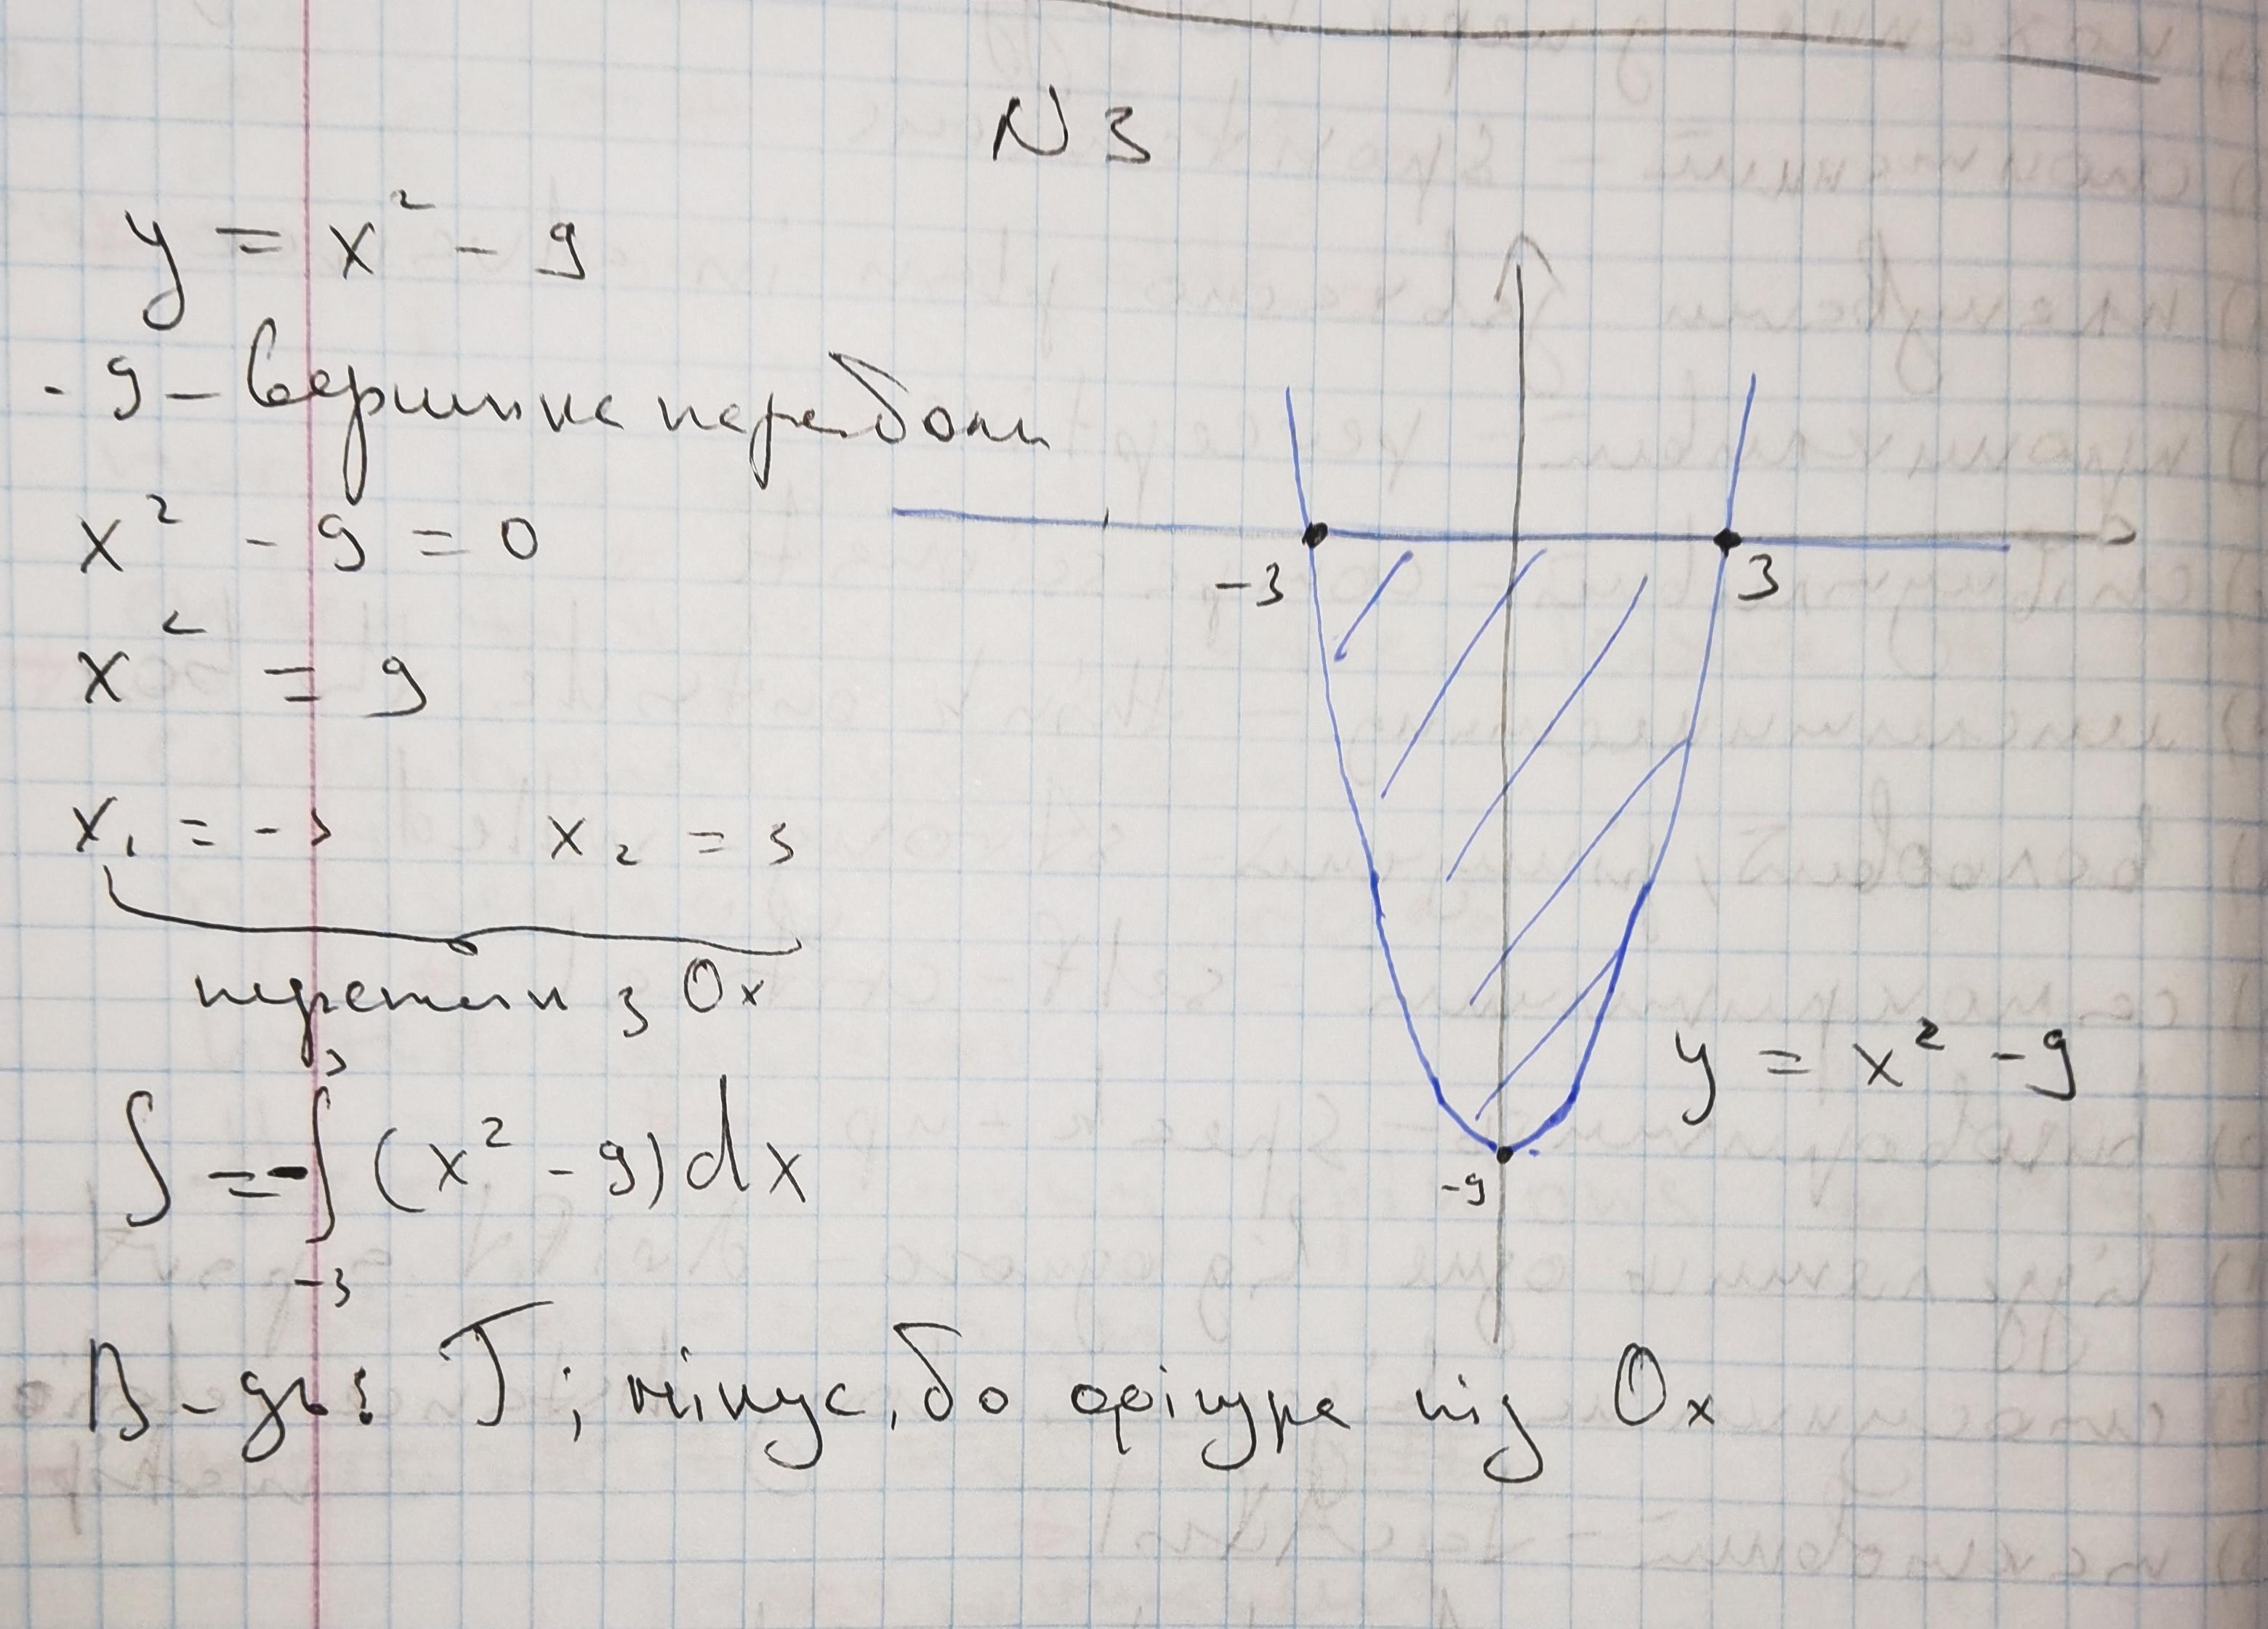 N 3
y = x² - 9
-9 - вершина параболи
x² - 9 = 0
x² = 9
x₁ = -3 x₂ = 3
перетин з Ox
S = -∫₋₃³ (x² - 9) dx
В-дь: Г; мінус, бо фігура під Ox
-3
3
-9
y = x² - 9